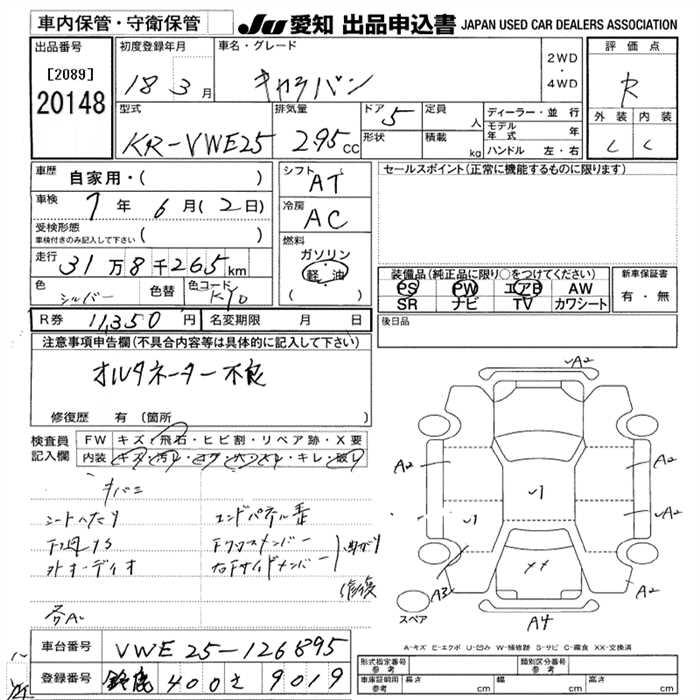 車内保管・守衛保管
JU 愛知 出品申込書 JAPAN USED CAR DEALERS ASSOCIATION
出品番号 初度登録年月 車名・グレード 2WD・4WD 評価点
[2089] 18 3月 キャラバン R
20148 型式 排気量 ドア 5 定員 人 ディーラー・並行 外装 内装
KR-VWE25 295cc 形状 積載 kg モデル年式 年 C C
ハンドル 左・右
車歴 自家用・( ) シフト AT セールスポイント(正常に機能するものに限ります)
車検 7年6月(2日) 冷房 AC
受検形態 車検付きのみ記入して下さい ( )
走行 31万8千265km 燃料 ガソリン 軽・油 ( )
装備品(純正品に限り○をつけてください) 新車保証書
PS PW エアB AW 有・無
SR ナビ TV カワシート
色 シルバー 色替 色コード KY0
R券 11,350円 名変期限 月 日 後日品
注意事項申告欄(不具合内容等は具体的に記入して下さい)
オルタネーター不良
修復歴 有(箇所 )
検査員記入欄 FW キズ・飛石・ヒビ割・リペア跡・X要
内装 キズ・汚レ・コゲ・穴・スレ・キレ・破レ
シートヘたり エンドパネル歪
Fクロスメンバー
右Fサイドメンバー 曲がり
修復
各A2
A2 A2 A2 A2 A3 A4
スペア
A-キズ E-エクボ U-凹み W-補修跡 S-サビ C-腐食 XX-交換済
車台番号 VWE25-126895
登録番号 鈴鹿 400 さ 9019
形式指定番号 参考 類別区分番号 参考
車庫証明用 参考 長さ cm 幅 cm 高さ cm